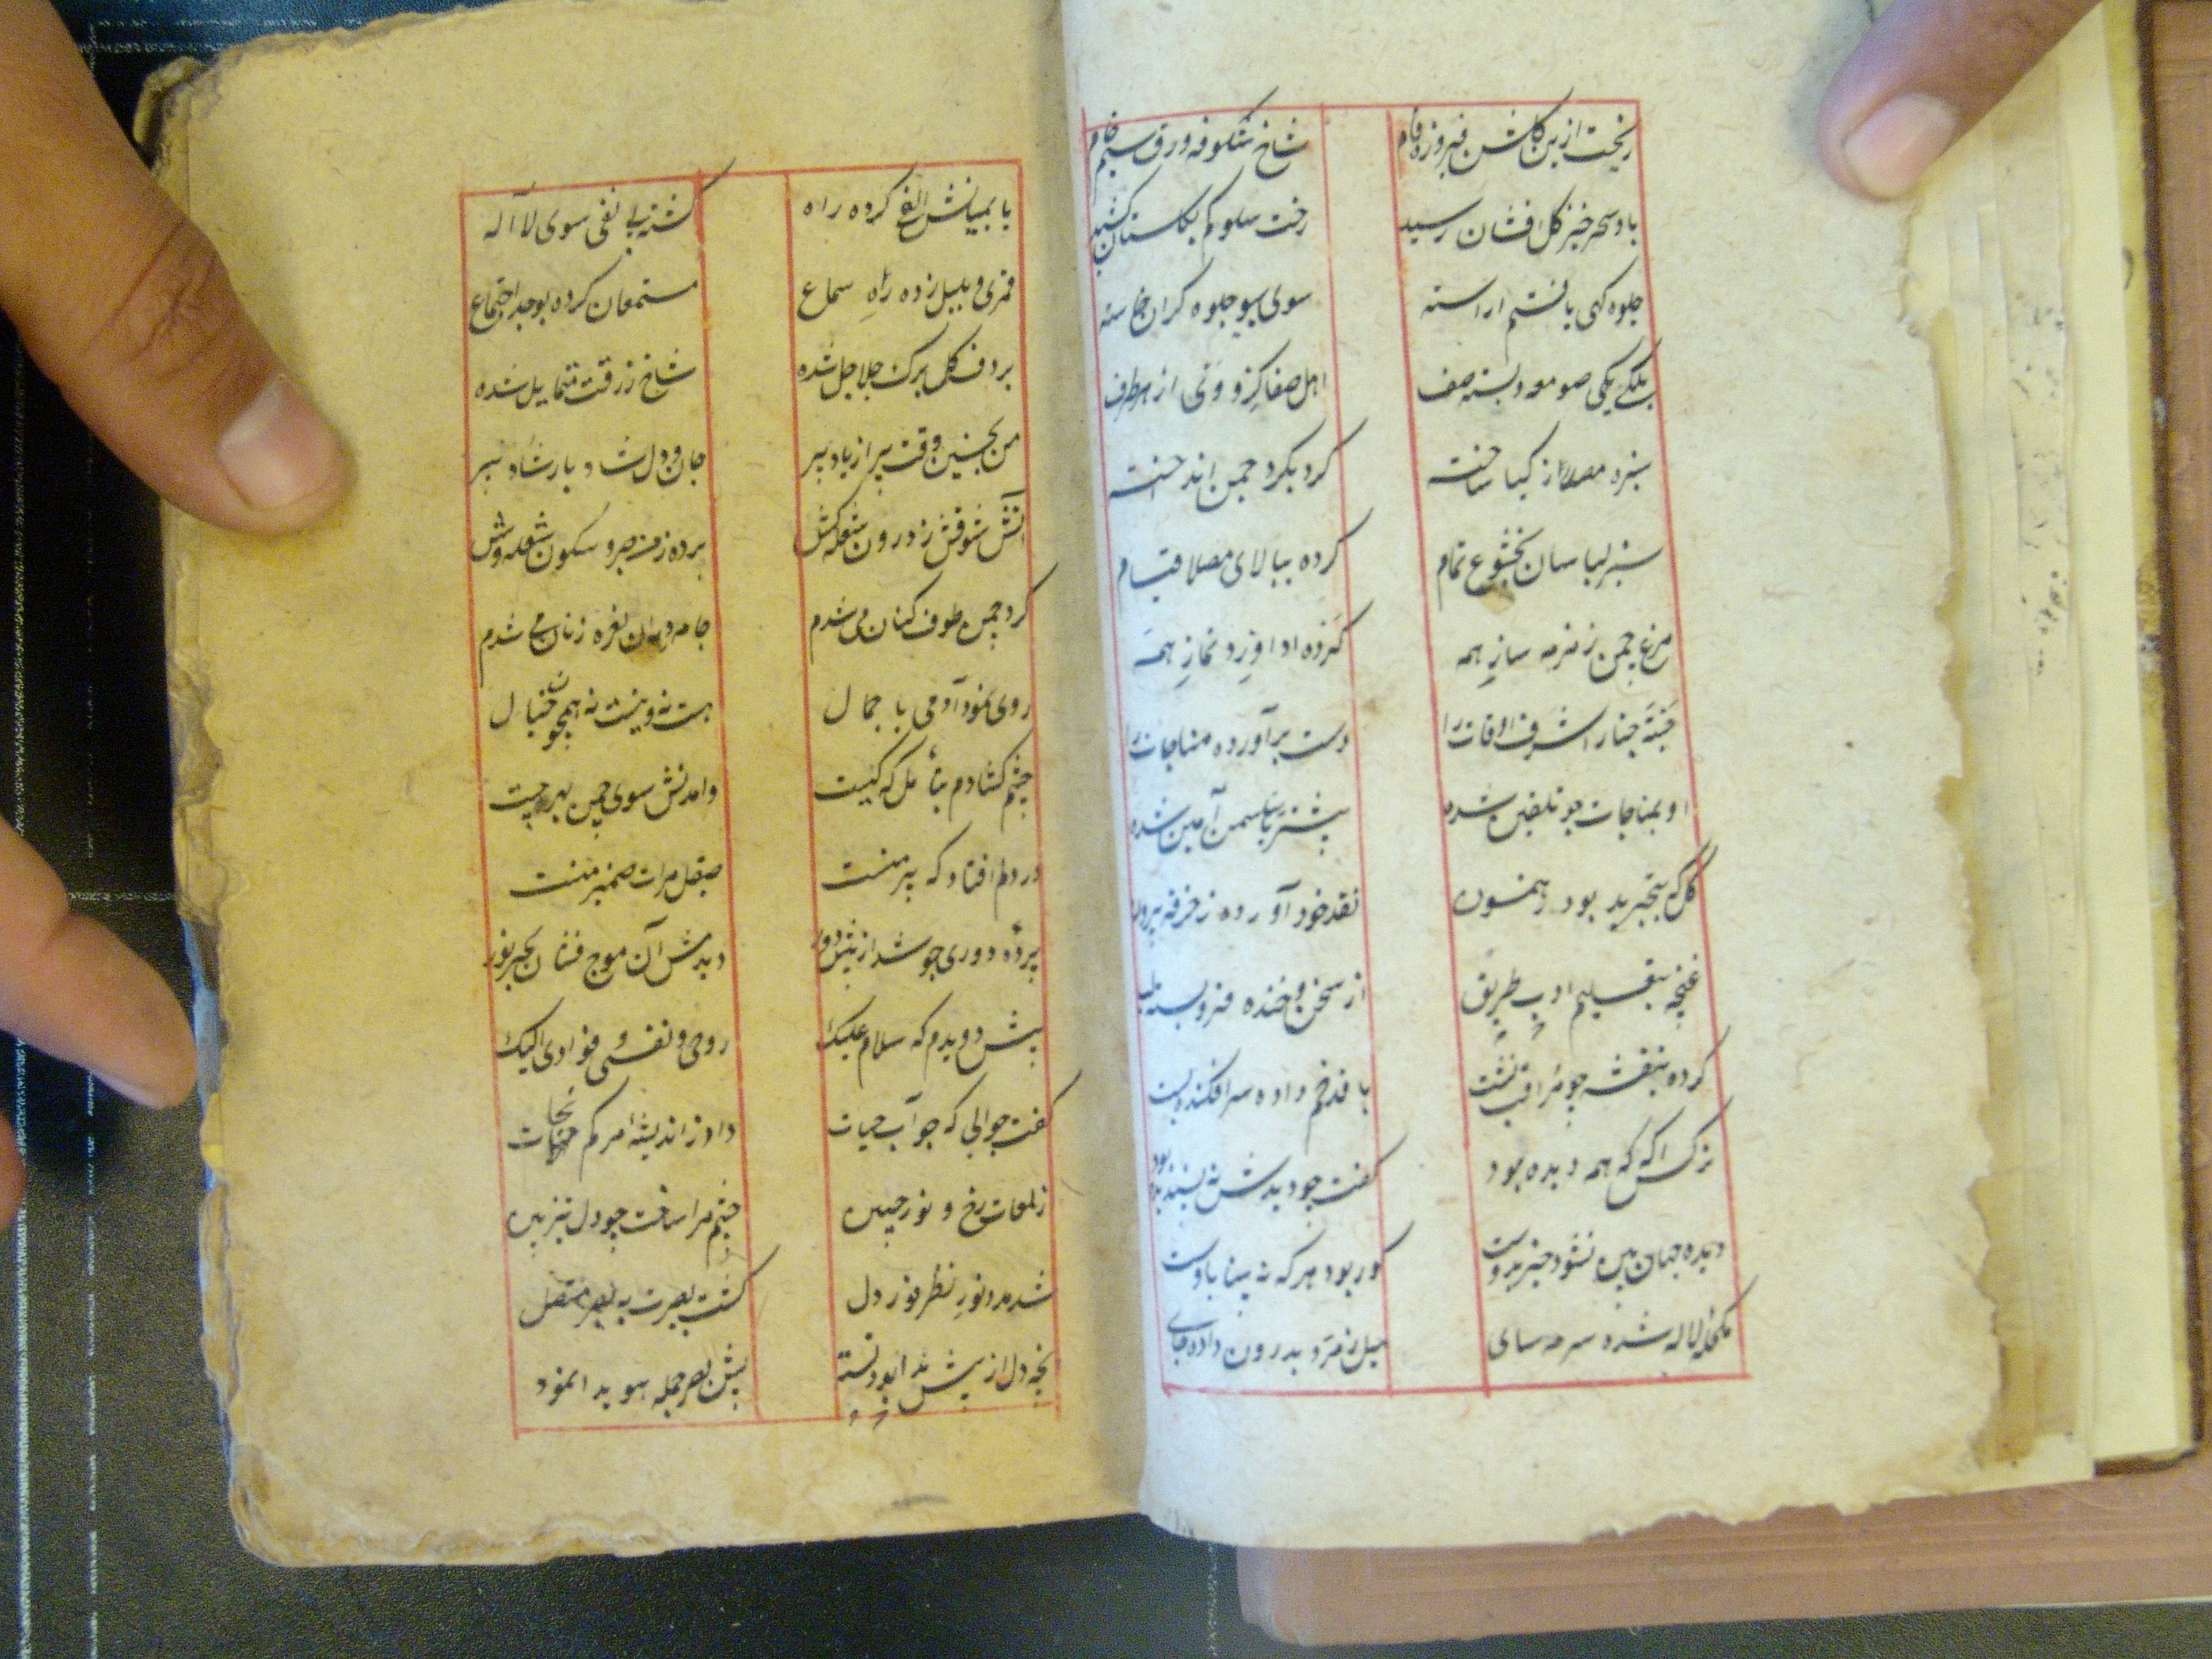 ریخت ازین گلشن فیروزه فام شاخ شکوفه ورق سیم خام
باد سحرخیز گل افشان رسید رخت سلوکم بگلستان کشید
جلوه کهی یافتم اراسته سوی بسو جلوه کران خاسته
بلکه یکی صومعه و بسته صف اهل صفا کزو وی از هر طرف
سبزه مصلا ز کیا ساخته کرد بکرد چمن انداخته
سبز لباسان بخشوع تمام کرده ببالای مصلا قیام
مرغ چمن زمزمه ساز همه کرده ادا ورد نماز همه
پنجه چنار اشرف اوقات را دست برآورده مناجات را
او بمناجات چو تلقین شده پیشتر یاسمن آمین شده
کل که بتجرید بود رهنمون نقد خود آورده ز خرقه برون
غنچه بتعلیم ادب طریق از سخن و خنده فرو بسته لب
کرده بنفشه چو مراقب نشست با قد خم داده سرافکنده پست
نرکس اکه که همه دیده بود کفت چو دیدش نه پسندیده بود
دیده جهان بین نشود جز بدوست کور بود هر که نه بینا باوست
مکحله لاله شده سرمه سای میل زمرد بدرون داده جای
با بمیانش الف کرده راه کشته پی نفی سوی لا آله
قمری و بلبل زده راه سماع مستمعان کرده بوجد اجتماع
بر دف کل برک جلاجل شده شاخ ز رقت متمایل شده
من بچنین وقت پر از یاد پیر جان و دل شاد بارشاد پیر
آتش شوقش ز درون شعله کش برده ز من صبر و سکون شعله وش
کرد چمن طوف کنان می شدم جامه دران نعره زنان می شدم
روی نمود آدمی با جمال هست نه و نیست نه همچون خیال
چشم کشادم بتأمل که کیست وامدنش سوی چمن بهر چیست
در دلم افتاد که پیر منست صیقل مرات ضمیر منست
پرده دوری چو شد از پیش دور دیدمش آن موج فشان بحر نور
پیش دویدم که سلام علیک روحی و نفسی و فوادی الیک
کفت جوابی که چو آب حیات داد ز اندیشه امرکم نجات
ز لمعات رخ و نور جبین چشم مرا ساخت چو دل تیزبین
شد مدد نور نظر نور دل کشت بصیرت به بصر متصل
پیش بصر جمله هویدا نمود